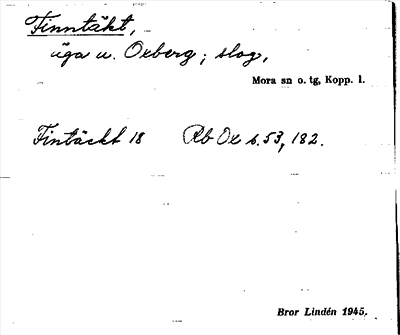 Finntäkt,
äga u. Oxberg; slog,
Mora sn o. tg, Kopp. l.
Fintäckt 18 Rb Ox s. 53, 182.
Bror Lindén 1945.